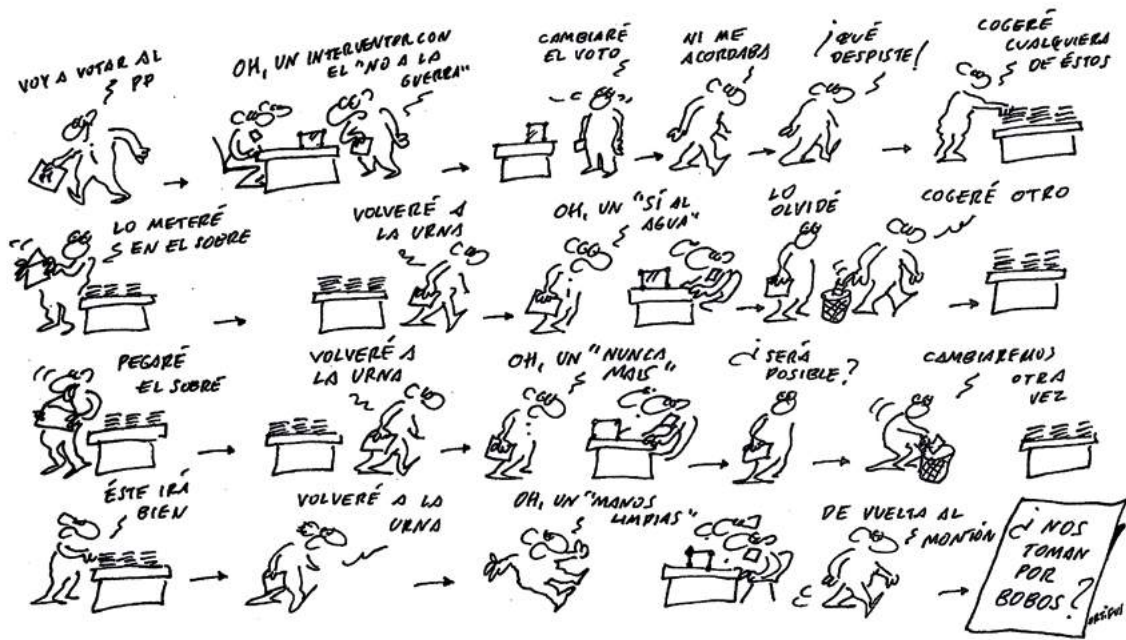 VOY A VOTAR AL
PP
OH, UN INTERVENTOR CON
EL "NO A LA
GUERRA"
CAMBIARÉ
EL VOTO
NI ME
ACORDABA
¡QUÉ
DESPISTE!
COGERÉ
CUALQUIERA
DE ÉSTOS
LO METERÉ
EN EL SOBRE
VOLVERÉ A
LA URNA
OH, UN "SÍ AL
AGUA"
LO
OLVIDÉ
COGERÉ OTRO
PEGARÉ
EL SOBRE
VOLVERÉ A
LA URNA
OH, UN "NUNCA
MAIS"
¿SERÁ
POSIBLE?
CAMBIAREMOS
OTRA
VEZ
ÉSTE IRÁ
BIEN
VOLVERÉ A LA
URNA
OH, UN "MANOS
LIMPIAS"
DE VUELTA AL
MONTÓN
¿NOS
TOMAN
POR
BOBOS?
ORTIFUS